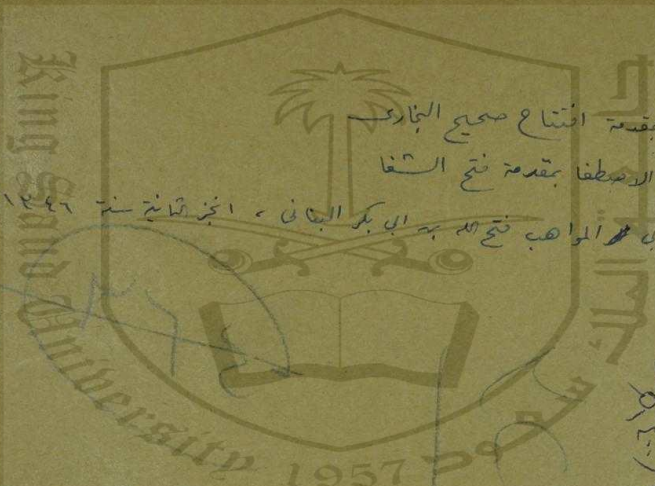 بقدمة افتتاح صحيح البخارى
الاصطفا بمقدمة فتح الشفا
المواهب فتح الله بن ابى بكر البنانى ، انجز ثانية سنة ١٣٤٦
King Saud University
1957